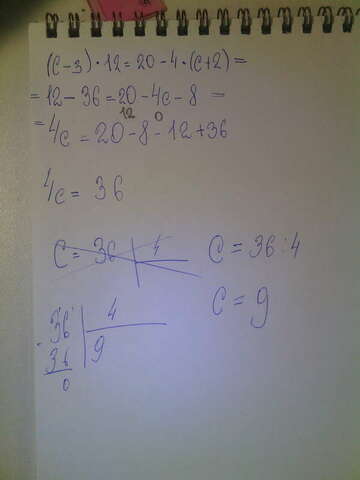 (c-3)·12=20-4·(c+2)=
=12-36=20-4c-8=
12 0
=4c=20-8-12+36
4c=36
C=36 4 C=36:4
C=9
36 4
- 36 9
0